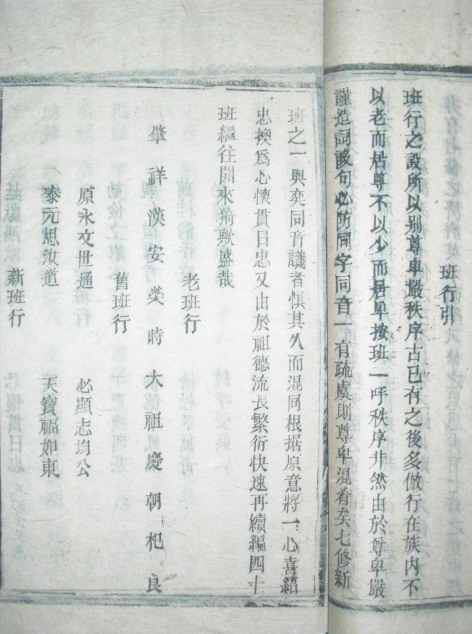 班行引
班行之設所以別尊卑嚴秩序古已有之後多倣行在族內不
以老而居尊不以少而居卑按班一呼秩序井然由於尊卑嚴
謹造詞設句必防同字同音一有疏虞則尊卑混看矣七修新
班之一與奕同音議者慎其久而混同根据原意將一心喜紹
忠換為心懷貫日忠又由於祖德流長繁衍快速再續編四十
班繼往開來猗歟盛哉
老班行
肇祥漢安榮時大祖慶朝杞良
舊班行
原永文世通 必顯志均公
泰元思汝道 天寶福如東
新班行